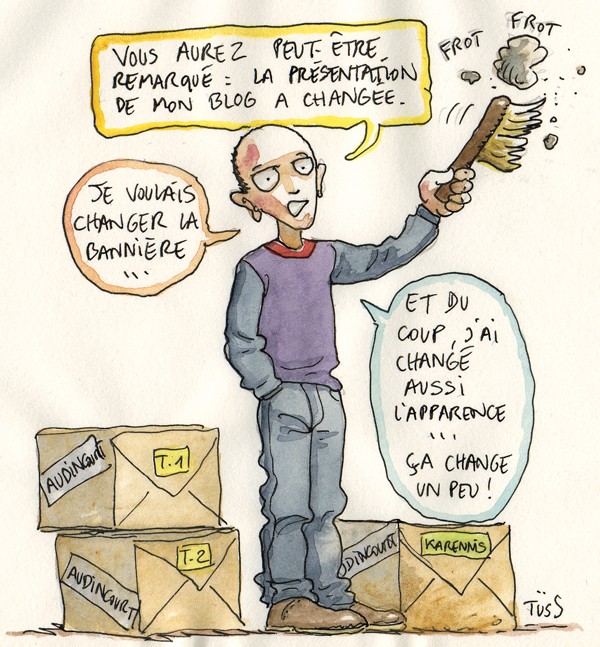 VOUS AUREZ PEUT-ÊTRE
REMARQUÉ : LA PRÉSENTATION
DE MON BLOG A CHANGÉE.
FROT
FROT
JE VOULAIS
CHANGER LA
BANNIÈRE
...
ET DU
COUP, J'AI
CHANGÉ
AUSSI
L'APPARENCE
...
ÇA CHANGE
UN PEU !
AUDINCOURT
T.1
AUDINCOURT
T-2
DINCOURT
KARENNIS
TÜSS